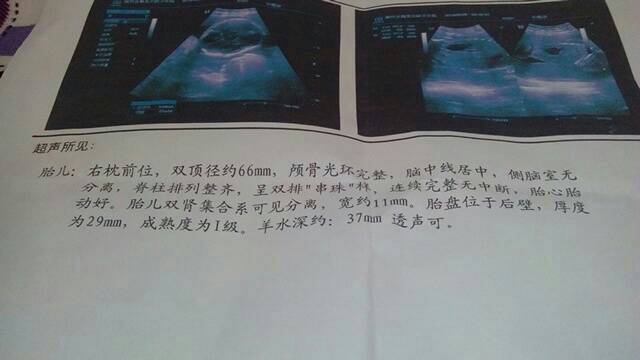 超声所见:
胎儿: 右枕前位, 双顶径约66mm, 颅骨光环完整, 脑中线居中, 侧脑室无
分离, 脊柱排列整齐, 呈双排"串珠"样, 连续完整无中断, 胎心胎
动好。胎儿双肾集合系可见分离, 宽约11mm。胎盘位于后壁, 厚度
为29mm, 成熟度为I级。羊水深约: 37mm 透声可。